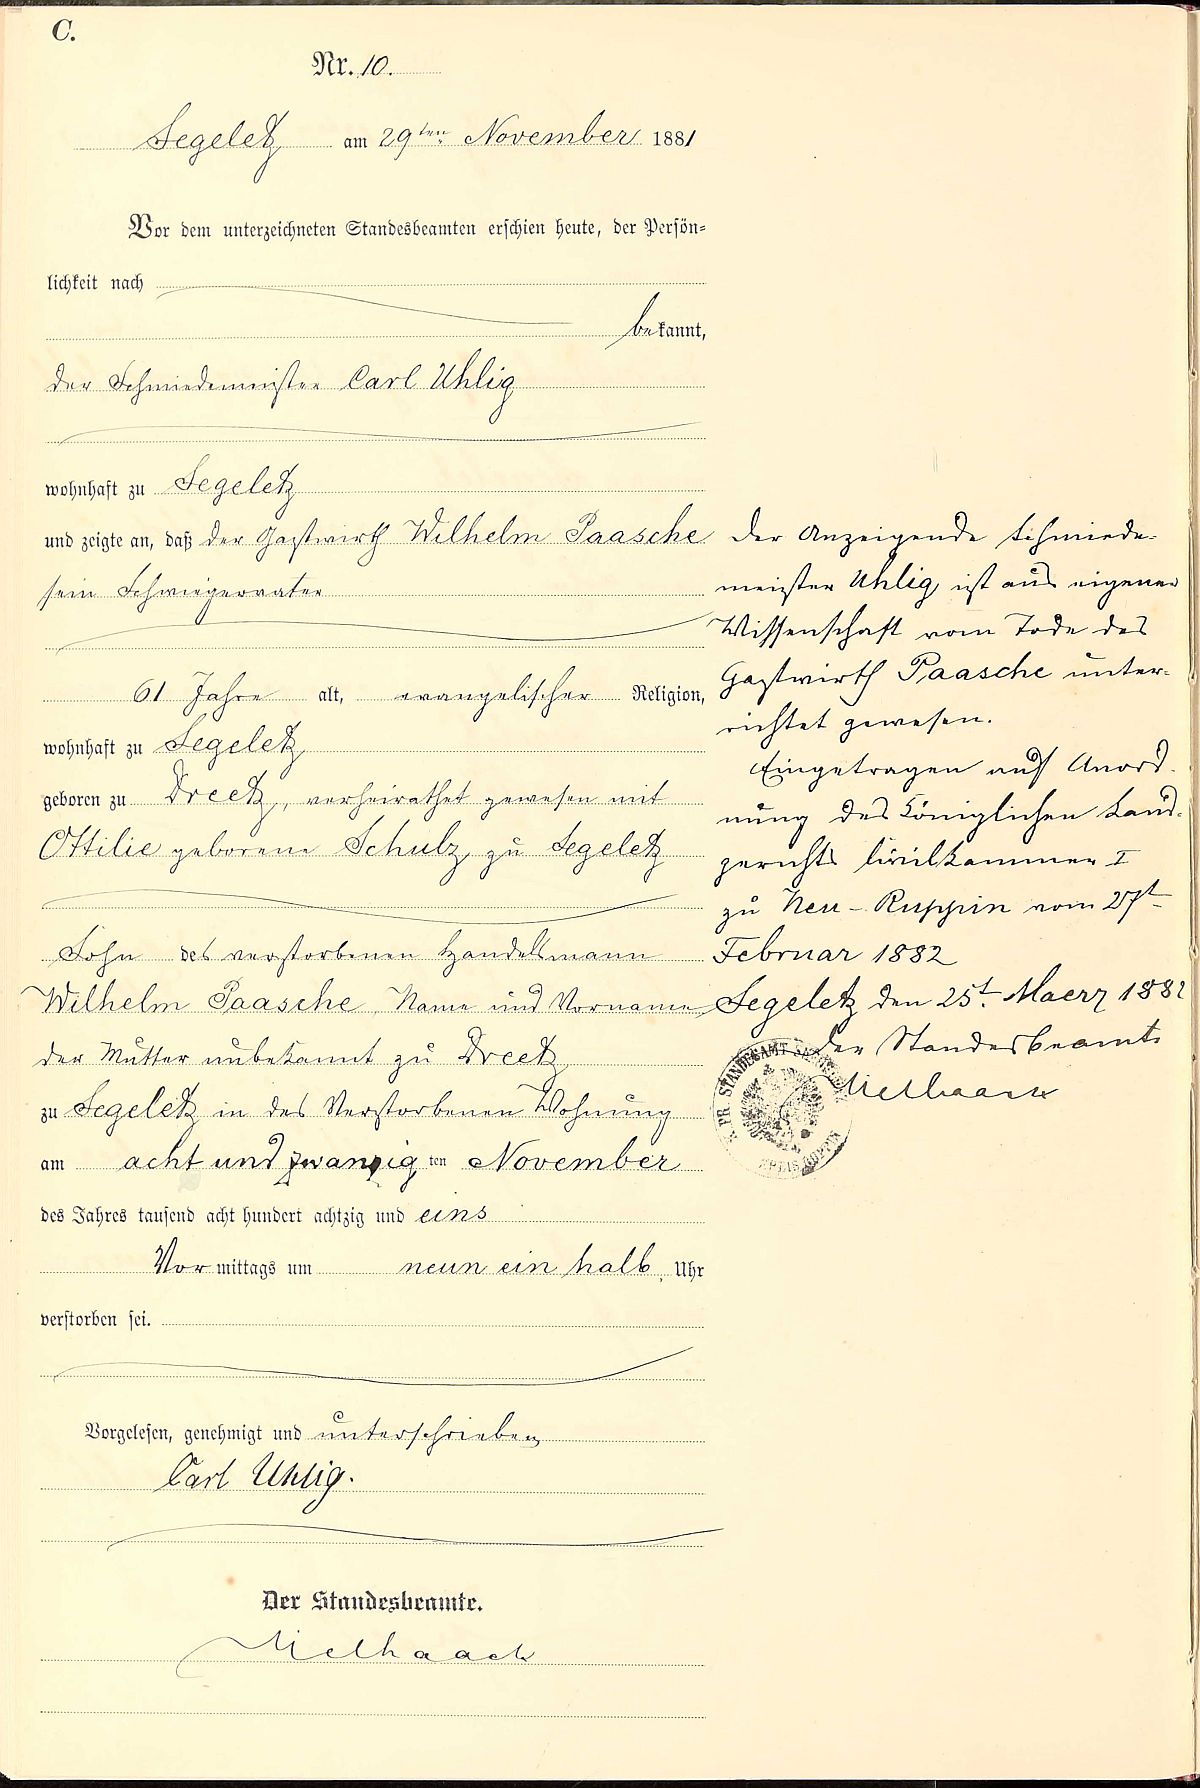 C.
Nr. 10.
Segeletz am 29ten November 1881
Vor dem unterzeichneten Standesbeamten erschien heute, der Persön-
lichkeit nach
bekannt,
der Schmiedemeister Carl Uhlig
wohnhaft zu Segeletz
und zeigte an, daß der Gastwirth Wilhelm Paasche
sein Schwiegervater
61 Jahre alt, evangelischer Religion,
wohnhaft zu Segeletz
geboren zu Dreetz, verheirathet gewesen mit
Ottilie geborene Schulz zu Segeletz
Sohn des verstorbenen Handelsmann
Wilhelm Paasche, Name und Vorname
der Mutter unbekannt zu Dreetz
zu Segeletz in des Verstorbenen Wohnung
am acht und zwanzig ten November
des Jahres tausend acht hundert achtzig und eins
Vor mittags um neun ein halb Uhr
verstorben sei.
Vorgelesen, genehmigt und unterschrieben
Carl Uhlig.
Der Standesbeamte.
Mielhaack
Der Anzeigende Schmiede-
meister Uhlig ist aus eigener
Wissenschaft vom Tode des
Gastwirth Paasche unter-
richtet gewesen.
Eingetragen auf Anord-
nung des Königlichen Land-
gerichts Civilkammer I
zu Neu-Ruppin vom 27t
Februar 1882
Segeletz den 25t. Maerz 1882
Der Standesbeamte
Mielhaack
PR. STANDESAMT